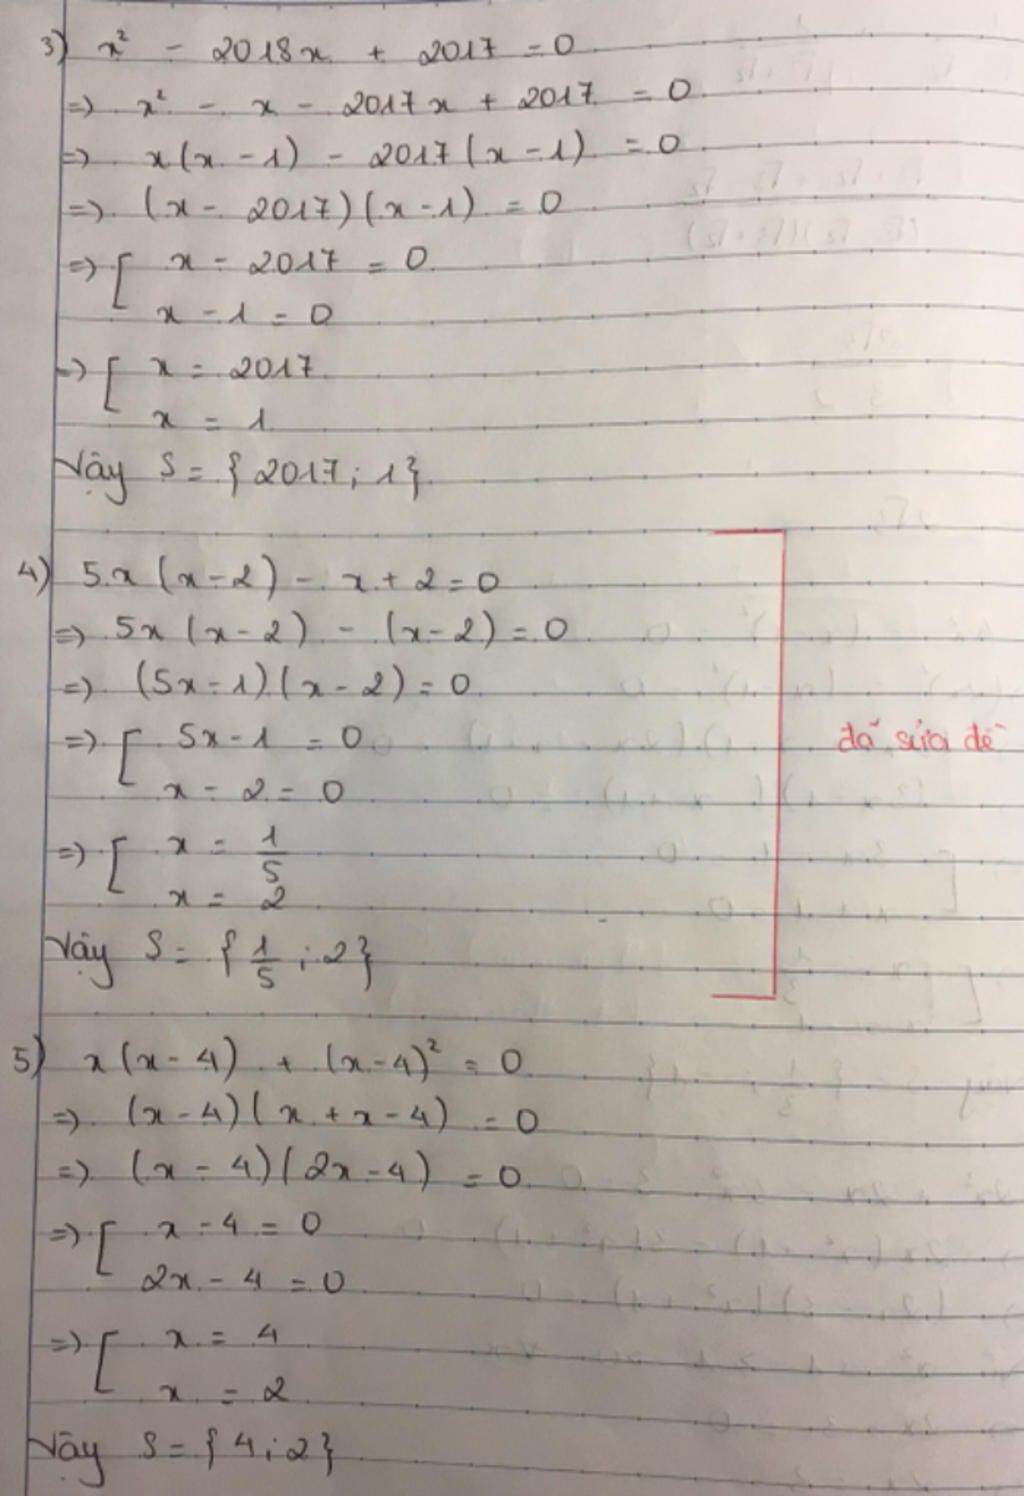 3) x² - 2018x + 2017 = 0
=> x² - x - 2017x + 2017 = 0
=> x(x - 1) - 2017(x - 1) = 0
=> (x - 2017)(x - 1) = 0
=> [ x - 2017 = 0
x - 1 = 0
=> [ x = 2017
x = 1
Vậy S = {2017; 1}
4) 5x(x - 2) - x + 2 = 0
=> 5x(x - 2) - (x - 2) = 0
=> (5x - 1)(x - 2) = 0
=> [ 5x - 1 = 0
x - 2 = 0
=> [ x = 1/5
x = 2
Vậy S = {1/5; 2}
đã sửa đề
5) x(x - 4) + (x - 4)² = 0
=> (x - 4)(x + x - 4) = 0
=> (x - 4)(2x - 4) = 0
=> [ x - 4 = 0
2x - 4 = 0
=> [ x = 4
x = 2
Vậy S = {4; 2}